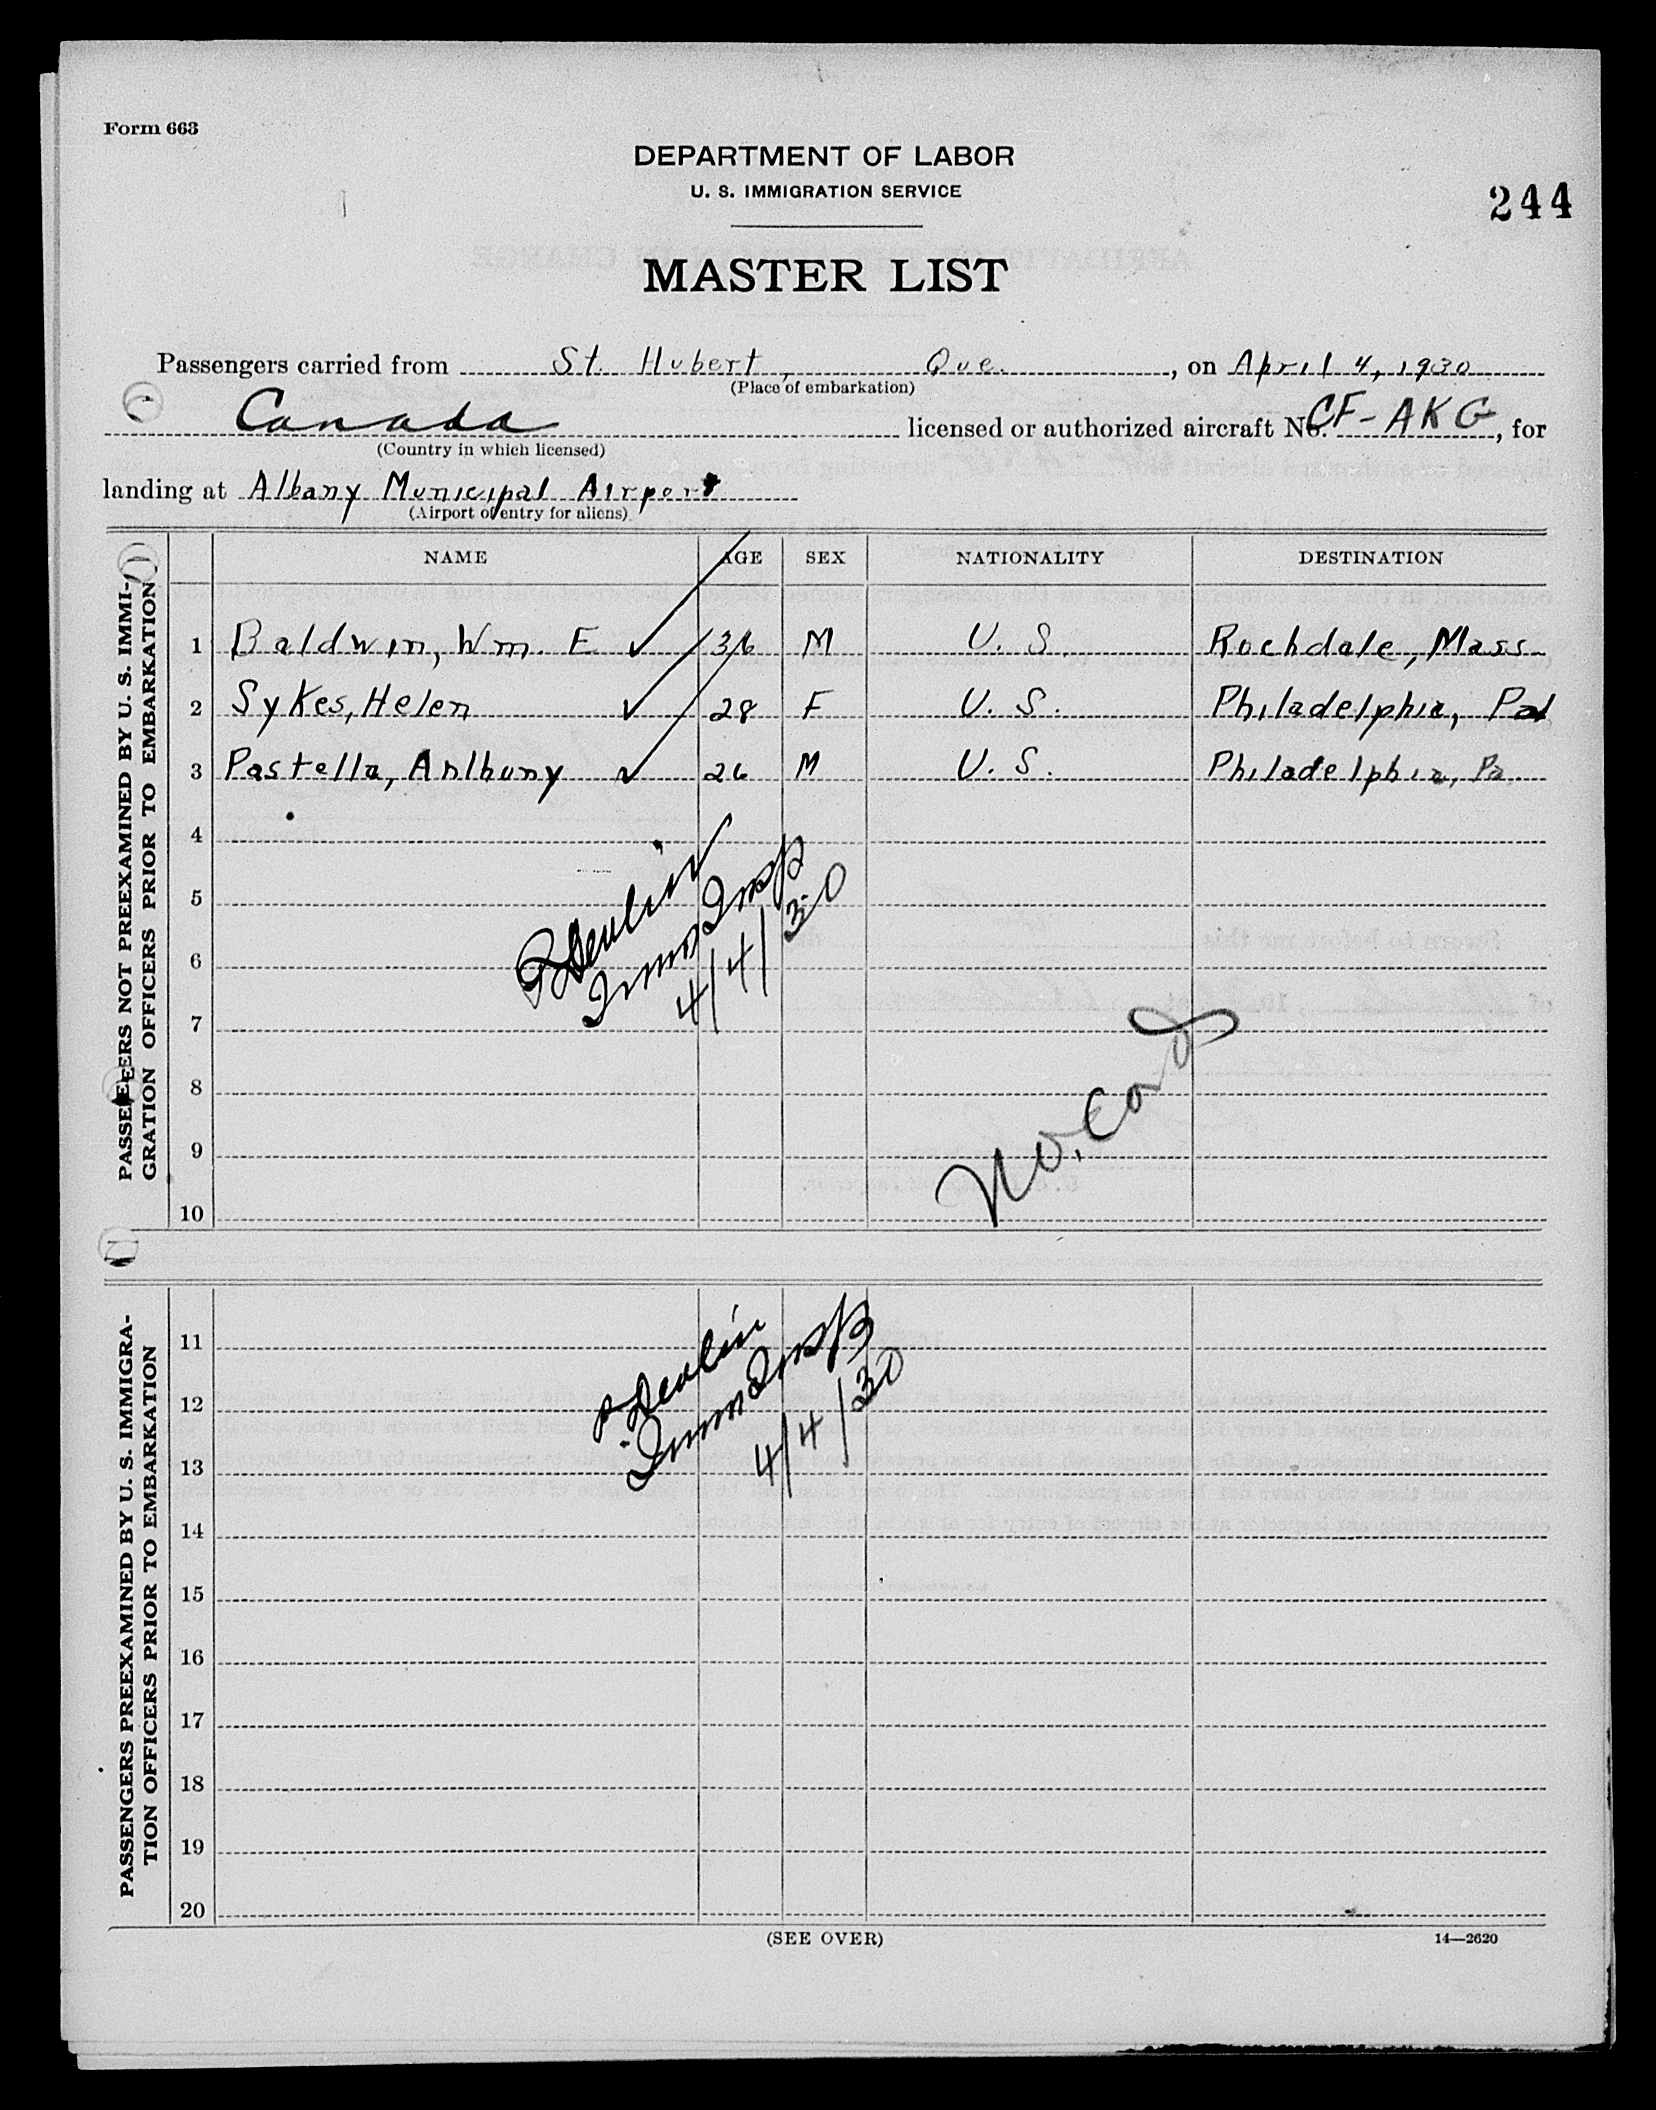 Form 663
DEPARTMENT OF LABOR
U. S. IMMIGRATION SERVICE
244
MASTER LIST
Passengers carried from St. Hubert, Que. , on April 4, 1930
(Place of embarkation)
Canada licensed or authorized aircraft No. CF-AKG, for
(Country in which licensed)
landing at Albany Municipal Airport
(Airport of entry for aliens)
NAME AGE SEX NATIONALITY DESTINATION
PASSENGERS NOT PREEXAMINED BY U. S. IMMI-
GRATION OFFICERS PRIOR TO EMBARKATION
1 Baldwin, Wm. E ✓ 36 M U. S. Rochdale, Mass
2 Sykes, Helen ✓ 28 F U. S. Philadelphia, Pa
3 Pastella, Anthony ✓ 26 M U. S. Philadelphia, Pa
4
5
6
7
8
9
10
Devlin
Imm Insp
4/4/30
No. Card
PASSENGERS PREEXAMINED BY U. S. IMMIGRA-
TION OFFICERS PRIOR TO EMBARKATION
11
12
13
14
15
16
17
18
19
20
Devlin
Imm Insp
4/4/30
(SEE OVER)
14—2620